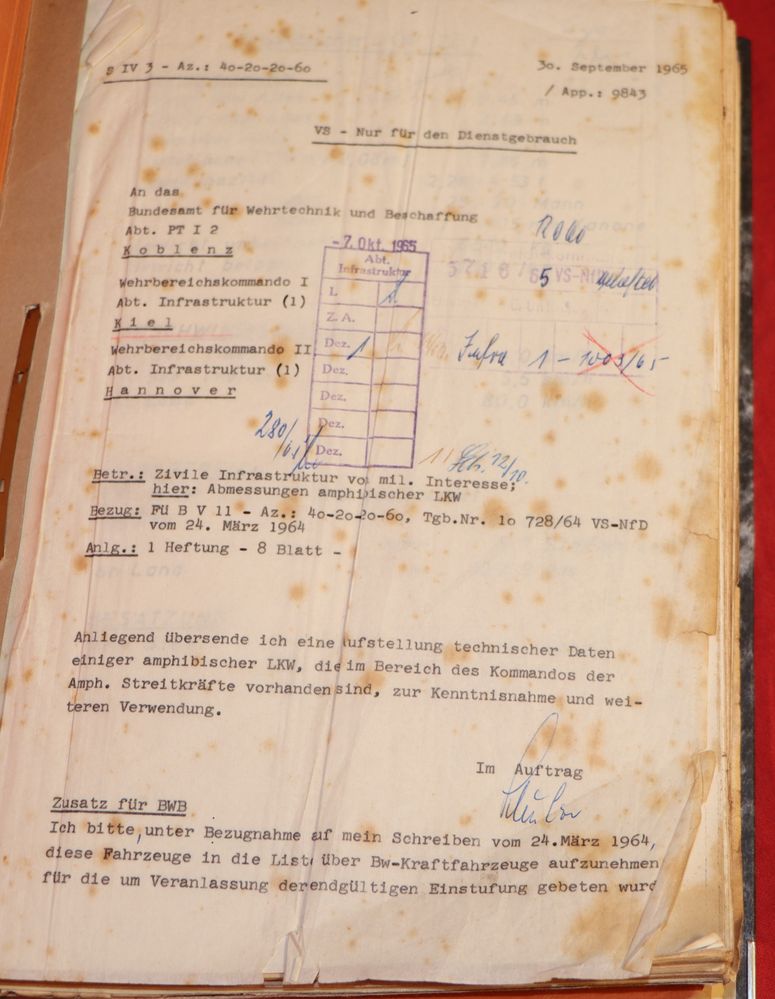 S IV 3 - Az.: 4o-2o-2o-6o
3o. September 1965
/ App.: 9843
VS - Nur für den Dienstgebrauch
An das
Bundesamt für Wehrtechnik und Beschaffung
Abt. PT I 2
Koblenz
- 7. Okt. 1965
Abt.
Infrastruktur
L
Z. A.
Dez. 1
Dez.
Dez.
Dez.
Dez.
5716/65 VS-NfD
Wehrbereichskommando I
Abt. Infrastruktur (1)
Kiel
Wehrbereichskommando II
Abt. Infrastruktur (1)
Hannover
Infra 1 - 1003/65
280/65
12/10.
Betr.: Zivile Infrastruktur vo mil. Interesse;
hier: Abmessungen amphibischer LKW
Bezug: Fü B V 11 - Az.: 4o-2o-2o-6o, Tgb.Nr. 1o 728/64 VS-NfD
vom 24. März 1964
Anlg.: 1 Heftung - 8 Blatt -
Anliegend übersende ich eine ufstellung technischer Daten
einiger amphibischer LKW, die im Bereich des Kommandos der
Amph. Streitkräfte vorhanden sind, zur Kenntnisnahme und wei-
teren Verwendung.
Im Auftrag
Zusatz für BWB
Ich bitte, unter Bezugnahme auf mein Schreiben vom 24.März 1964,
diese Fahrzeuge in die List über Bw-Kraftfahrzeuge aufzunehmen
für die um Veranlassung der endgültigen Einstufung gebeten wurd